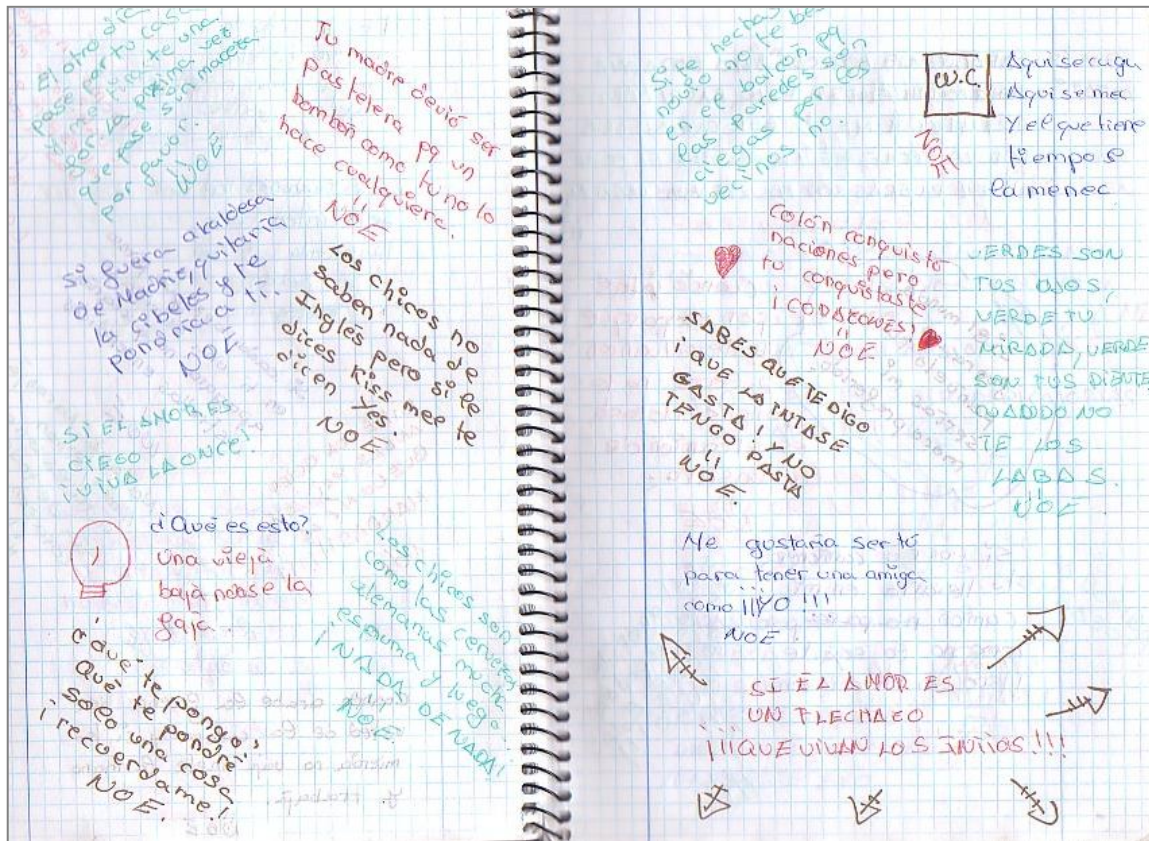 El otro día
pase par tu casa
y me tiraste una
flor. La próxima vez
que pase sin maceta
por favor.
NOE
Tu madre devió ser
pastelera pq un
bombón como tu no lo
hace cualquiera.
NOE
Si fuera alcaldesa
de Madrid, quitaria
la cibeles y te
pondría a ti.
NOE
Los chicos no
saben nada de
Inglés pero si le
dices Kiss mee te
dicen Yes.
NOE
SI EL AMOR ES
CIEGO
¡VIVA LA ONCE!
¿Qué es esto?
Una vieja
baja
faja.
Los chicos son
como las cervezas
alemanas mucha
espuma y luego
¡NADA DE NADA!
NOE
¿Que te pongo,
Qué te pondré
solo una cosa
¡recuerdame!
NOE.
Si te hechas
novio no te
en el balcón pq
las paredes son
ciegas per Los
vecinos no.
W.C.
NOE
Aqui se caga
Aqui se mea
Y el que tiene
tiempo se
la menea
Colón conquisto
naciones pero
tu conquistaste
¡CORAZONES!
NOE
VERDES SON
TUS OJOS,
VERDE TU
MIRADA, VERDE
SON TUS DIENTE
CUANDO NO
TE LOS
LABAS.
NOE
SABES QUE TE DIGO
¡QUE LA INTA SE
GASTA! Y NO
TENGO PASTA
NOE.
Me gustaría ser tú
para tener una amiga
como ¡¡¡YO!!!
NOE.
SI EL AMOR ES
UN FLECHAZO
¡¡¡QUE VIVAN LOS INIIOS!!!